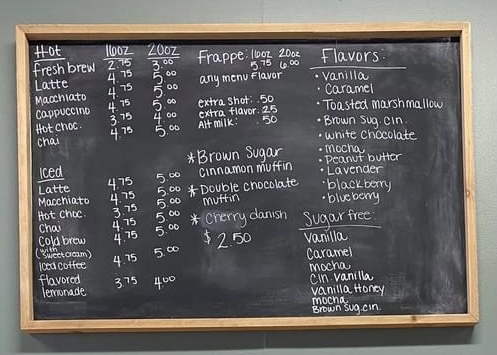 Hot 16oz 20oz
Fresh brew 2.75 3.00
Latte 4.75 5.00
Macchiato 4.75 5.00
Cappuccino 4.75 5.00
Hot choc. 3.75 4.00
Chai 4.75 5.00
Iced
Latte 4.75 5.00
Macchiato 4.75 5.00
Hot choc. 3.75 5.00
Chai 4.75 5.00
Cold brew 4.75 5.00
(with sweet cream)
Iced coffee 4.75 5.00
flavored
lemonade 3.75 4.00
Frappe: 16oz 20oz
5.75 6.00
any menu flavor
extra shot: .50
extra flavor .25
Alt milk: .50
* Brown Sugar
cinnamon muffin
* Double chocolate
muffin
* Cherry danish
$2.50
Flavors:
• Vanilla
• Caramel
• Toasted marshmallow
• Brown Sug. cin.
• white chocolate
• mocha
• Peanut butter
• Lavender
• blackberry
• blueberry
Sugar free:
Vanilla
Caramel
mocha
Cin. vanilla
Vanilla Honey
mocha
Brown Sug. cin.